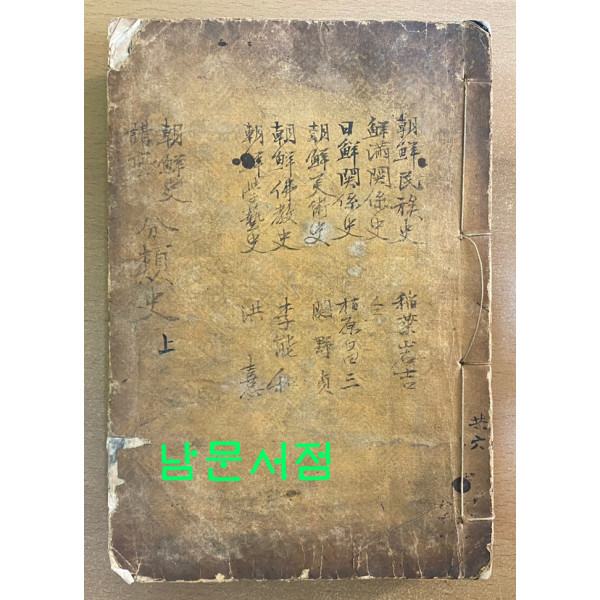 朝鮮民族史 稲葉岩吉
鮮滿関係史 仝
日鮮関係史 柏原昌三
朝鮮美術史 関野貞
朝鮮佛教史 李能和
朝鮮学藝史 洪憙
朝鮮史
講座 分類史 上
共六
남문서점